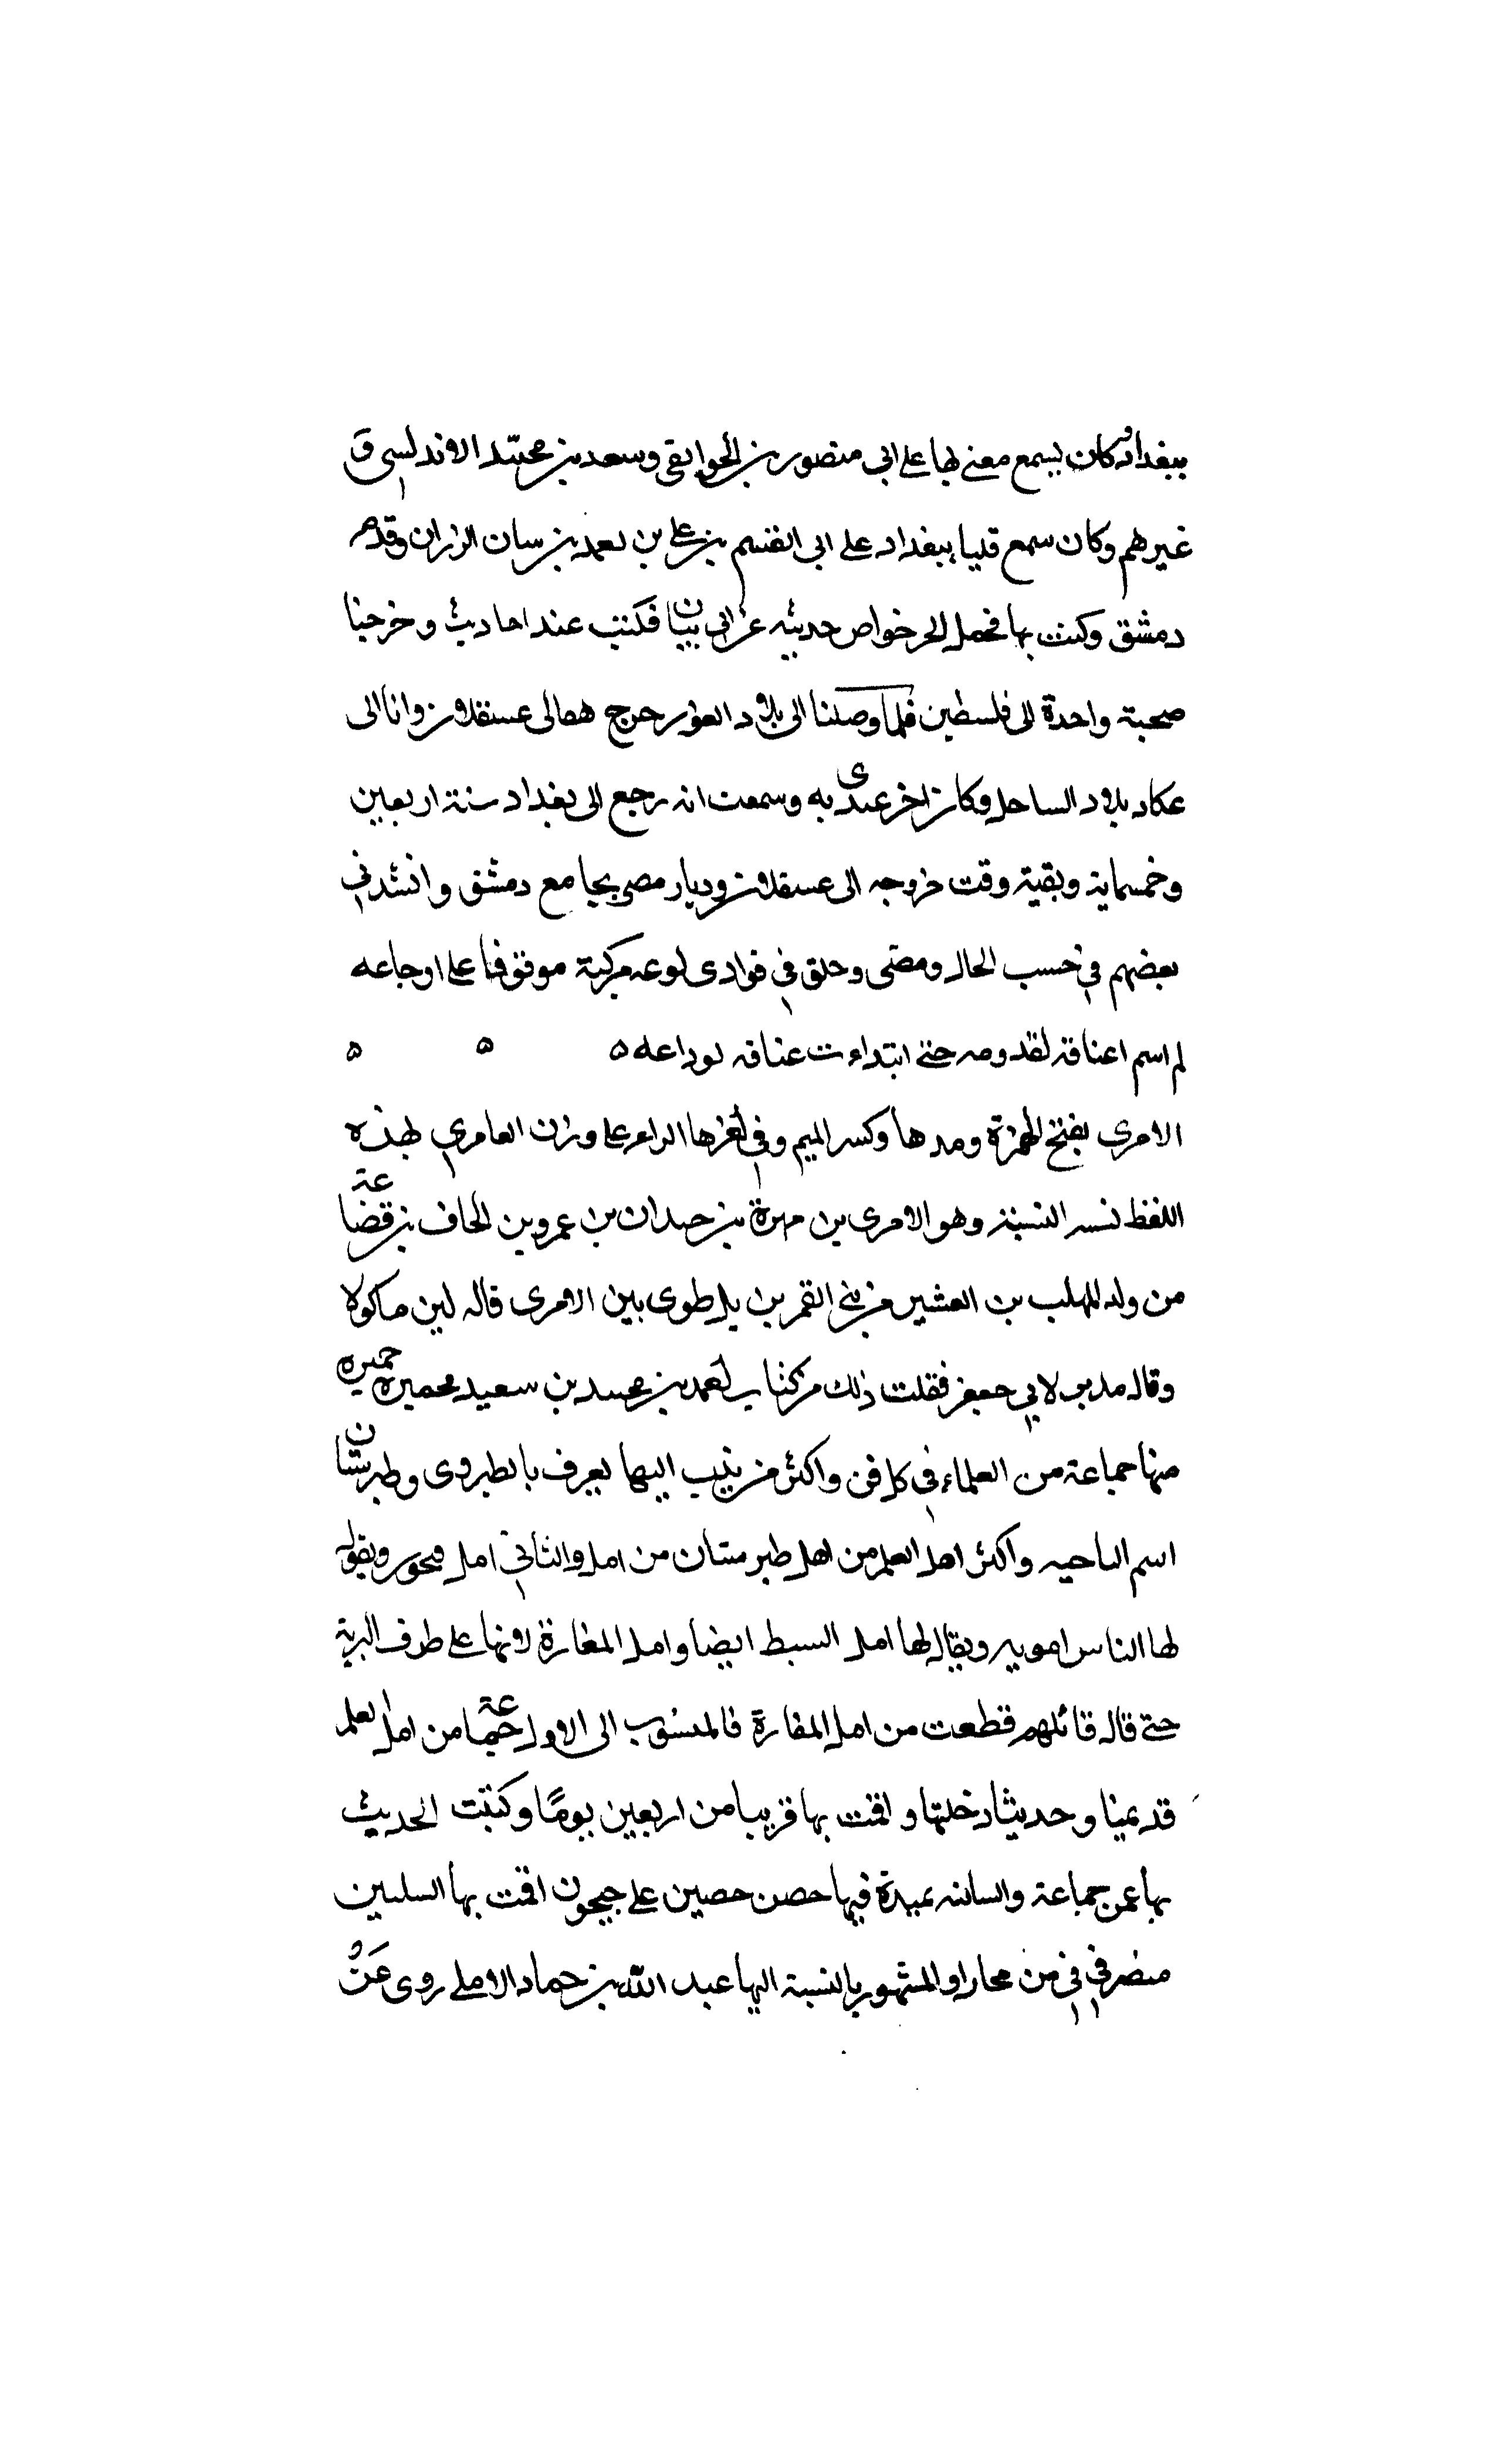 ببغداد وكان يسمع معنى بها على ابي منصور بن الجواليقى وسعد بن محمد الاندلسى و
غيرهم وكان سمع قليا ببغداد على ابى القسم بن على بن احمد بن بيان الرزان وقدم
دمشق وكنت بها فحمل الى خواص حديثه عن ابى بيان فكتب عند احاديث وخرجنا
صحبة واحدة الى فلسطين فلما وصلنا الى بلاد الغور خرج هو الى عسقلان وانا الى
عكا وبلاد الساحل وكان اخر عهدى به وسمعت انه رجع الى بغداد سنة اربعين
وخمسماية وبقية وقت خروجه الى عسقلان وديار مصر بجامع دمشق وانشدني
بعضهم في حسب الحال ومضى وخلق في فوادى لوعه تركبة موقوفا على اوجاعه
لم اسم اعناقه لقدومه حتى ابتداءت عناقه لوداعه ه ه ه
الامرى بفتح الهمزة ومدها وكسر الميم وفي اخرها الراء على وزن العامري لهذه
اللفظ لنسر النسبة وهو الامرى بن مهرة بن حيدان بن عمرو بن الحاف بن قضاعة
من ولد المهلب بن العشير من بني القمر بن يلطوى بين الامرى قاله ابن ماكولا
وقال لابي جعفر فقلت ذلك من كتاب احمد بن محمد بن سعيد حميره
منها جماعة من العلماء في كل فن واكثر من ينسب اليها يعرف بالطبروى وطبرستان
اسم الناحيه واكثر اهل العلم من اهل طبرستان من امل والثاني امل جيحون ويقول
لها الناس امويه ويقال لها امل السبط ايضا وامل المفازة لانها على طرف البرية
حتى قال قائلهم قطعت من امل المفازة فالمنسوب الى الاول جماعة من اهل العلم
قديما وحديثا دخلتها واقمت بها قريبا من اربعين يوما وكتبت الحديث
بها عن جماعة والثانيه بميدة فيها حصن حصين على جيحون اقمت بها
منصرفي في من بخارا والمشهور بالنسبة اليها عبد الله بن حماد الاملى روى عن